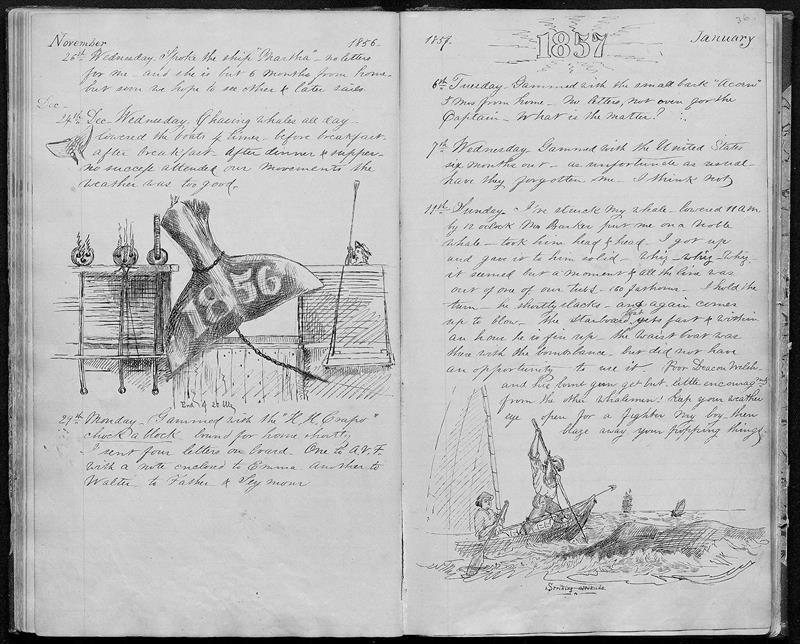 November 1856.
26th Wednesday. Spoke the ship "Martha" - no letters
for me - and she is but 6 months from home -
but soon we hope to see other & later sails
Dec -
24th Dec Wednesday. Chasing whales all day -
lowered the boats 4 times - before breakfast -
after breakfast - after dinner & supper -
no success attended our movements the
weather was too good.
1856
End of 56
29th Monday - Gammed with the "H. H. Crapo"
chock a block bound for home shortly
I sent four letters on board One to A.V.F.
with a note enclosed to Emma Another to
Walter to Father & Seymour
36
1857. 1857 January
6th Tuesday. Gammed with the small bark "Acorn"
5 Mos from home - No letters, not even for the
Captain - What is the matter?
7th Wednesday Gammed with the United States
six months out - as unfortunate as usual -
have they forgotten me - I think not
11th Sunday I've struck my whale - lowered 11 a.m.
by 12 oclock Mr Barker put me on a noble
whale - took him head & head - I got up
and gave it to him solid - whiz - whiz - whiz -
it seemed but a moment & all the line was
out of one of our tubs - 150 fathoms - I hold the
turn - he shortly slacks - and again comes
up to blow - The starboard Bt gets fast & within
an hour he is fin up - the waist boat was
there with the bomblance - but did not have
an opportunity to use it Poor Deacon Welsh
and his bomb gun get but little encouragment
from the other whalemen! keep your weather
eye open for a fighter my boy then
blaze away your popping things
Striking attitude